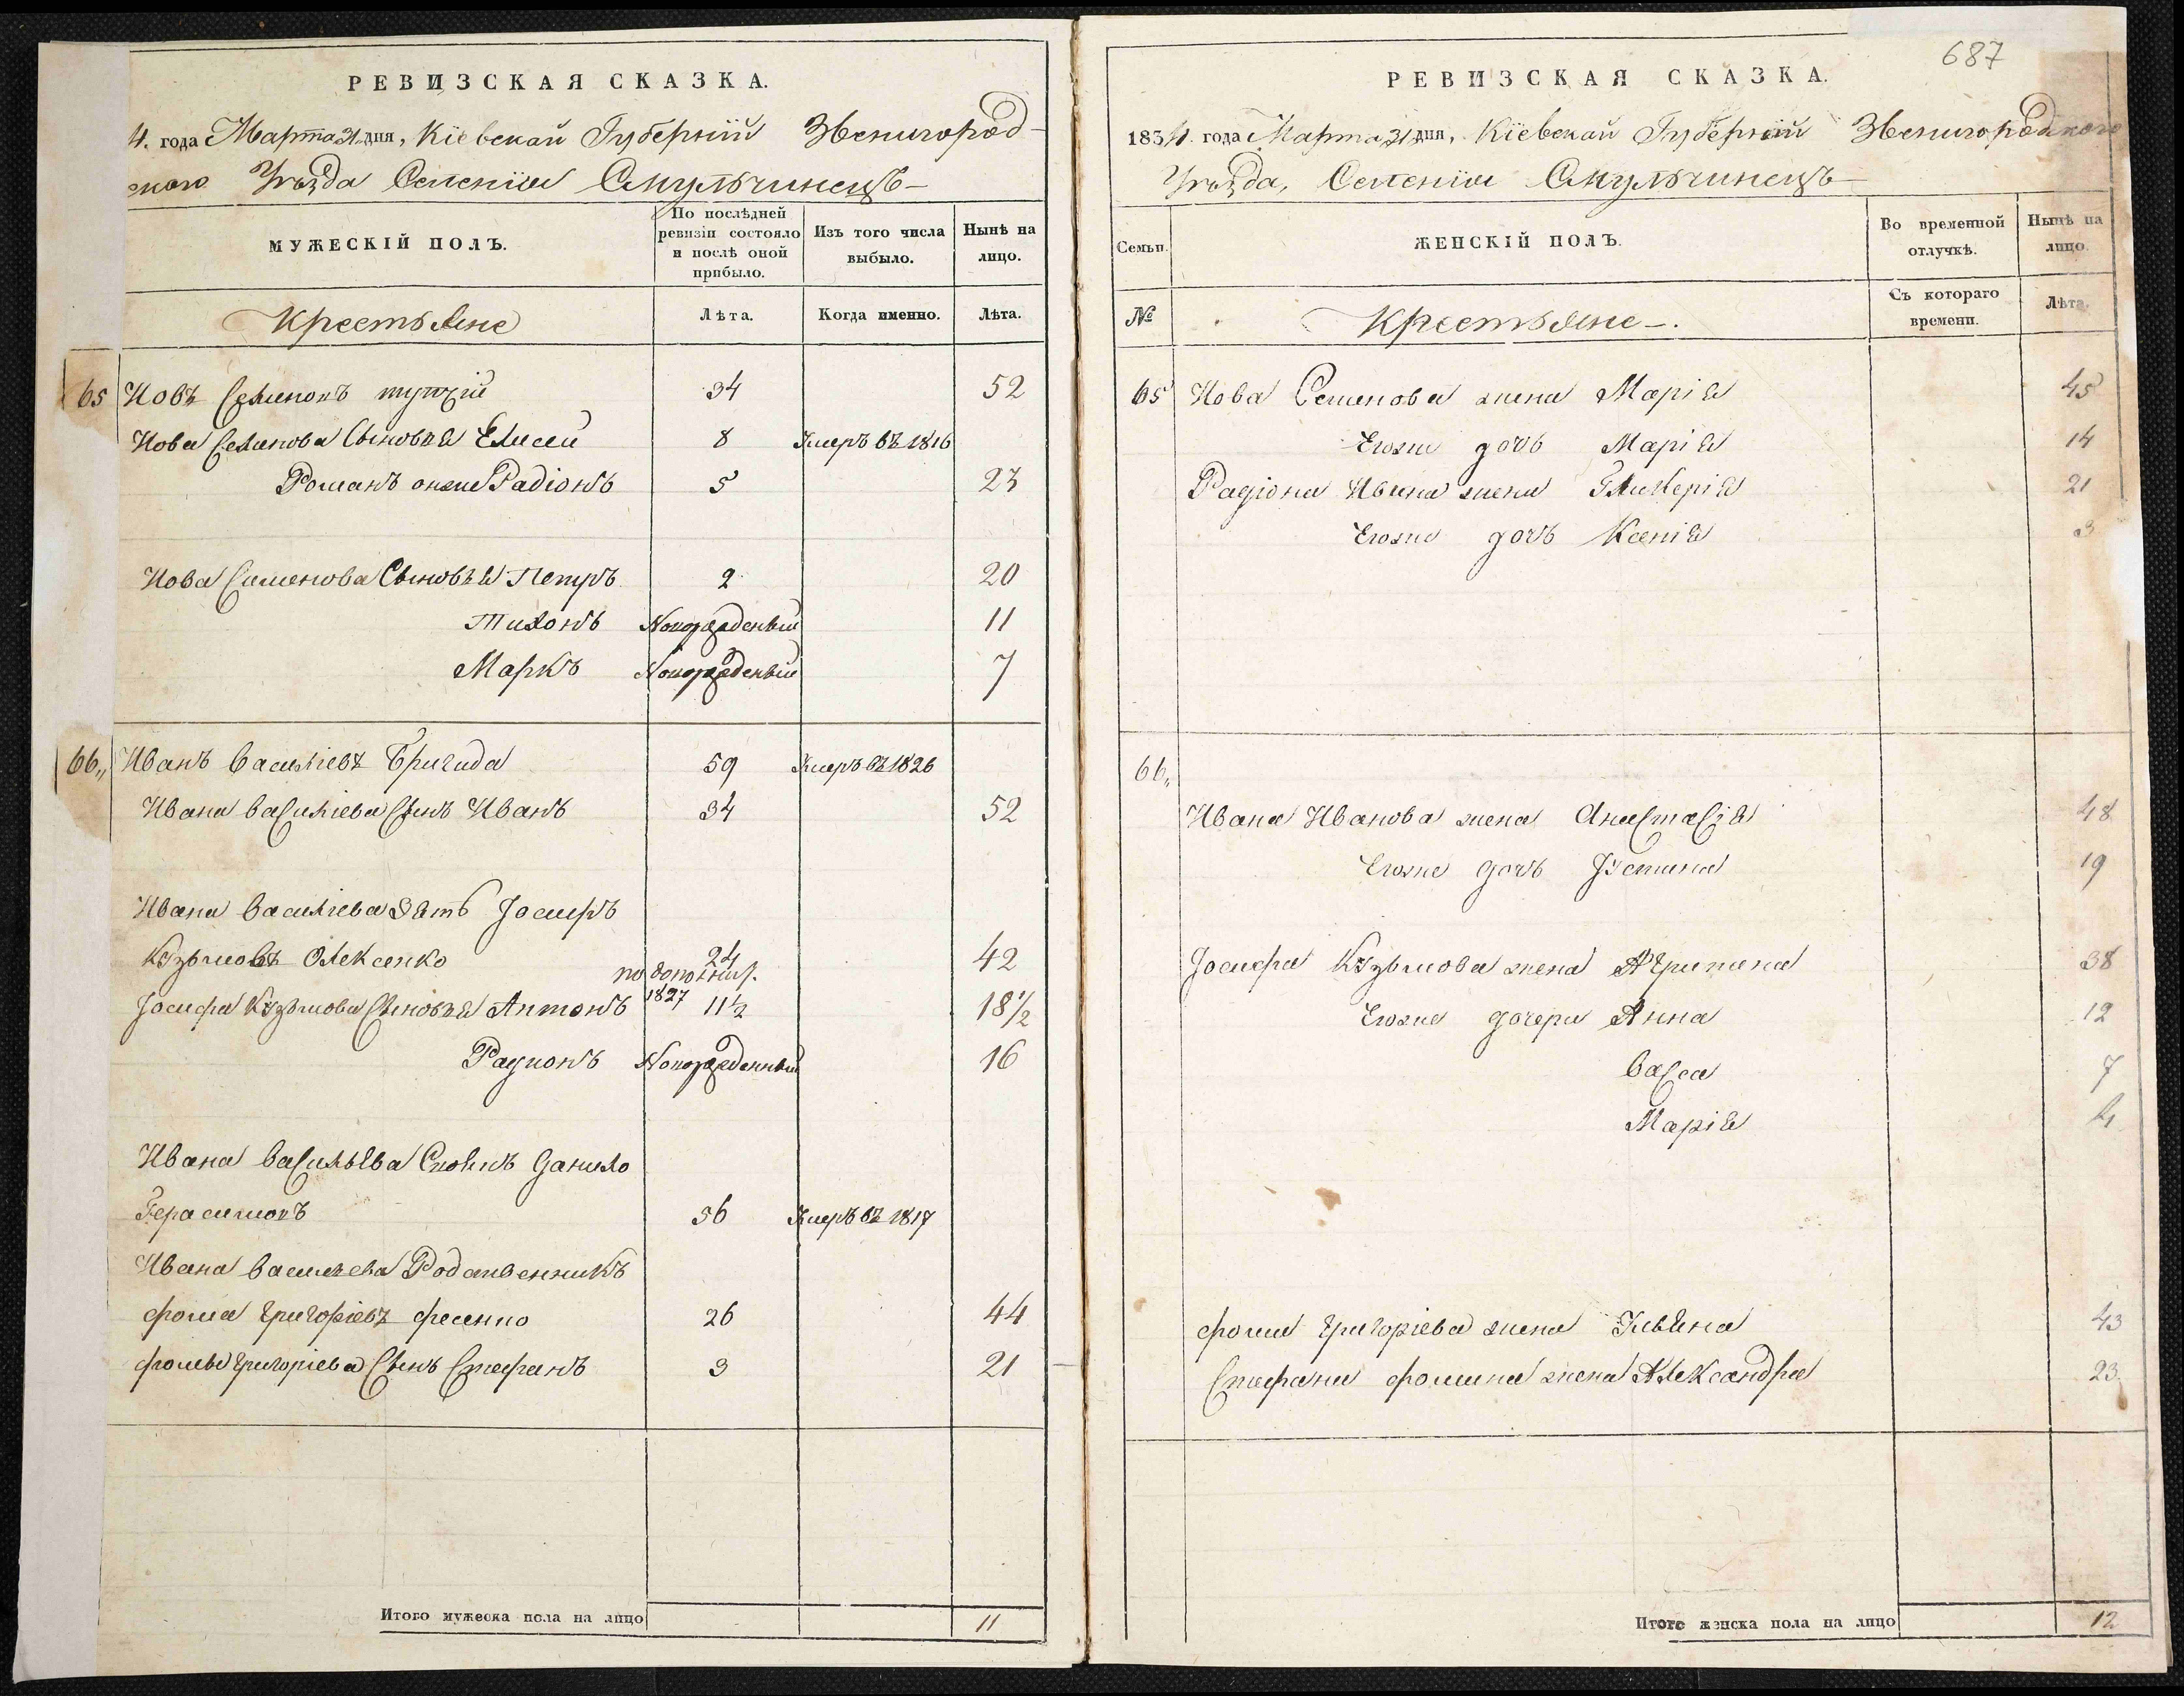 РЕВИЗСКАЯ СКАЗКА.
4. года Марта 31 дня, Кіевской Губерніи Звенигород-
скаго Уѣзда Селенія Смульчинецъ
МУЖЕСКІЙ ПОЛЪ.
По послѣдней ревизіи состояло и послѣ оной прибыло.
Изъ того числа выбыло.
Нынѣ на лицо.
Крестьяне
Лѣта.
Когда именно.
Лѣта.
65 Иовъ Семеновъ 34 52
Иова Семенова Сыновья Елисей 8 Умеръ въ 1816
Романъ онже Радіонъ 5 23
Иова Семенова Сыновья Петръ 2 20
Тихонъ Новорожденный 11
Маркъ Новорожденный 7
66 Иванъ Василіевъ Бригида 59 Умеръ въ 1826
Ивана Василіева Сынъ Иванъ 34 52
Ивана Василіева Зять Іосифъ
Кузьмовъ Олексенко 24 42
по дополнит.
Іосифа Кузьмова Сыновья Антонъ 1827 11½ 18½
Радионъ Новорожденный 16
Ивана Васильева Данило
Герасимовъ 56 Умеръ въ 1817
Ивана Васильева Родственникъ
Фома Григоріевъ Фесенко 26 44
Фомы Григоріева Сынъ Стефанъ 3 21
Итого мужеска пола на лицо 11
687
РЕВИЗСКАЯ СКАЗКА.
1834. года Марта 31 дня, Кіевской Губерніи Звенигородскаго
Уѣзда, Селенія Смульчинецъ
Семьи.
ЖЕНСКІЙ ПОЛЪ.
Во временной отлучкѣ.
Нынѣ на лицо.
№
Крестьяне
Съ котораго времени.
Лѣта.
65 Иова Семенова жена Марія 45
Егоже дочь Марія 14
Радіона Ивина жена Гликерія 21
Егоже дочь Ксенія 3
66
Ивана Иванова жена Анастасія 48
Егоже дочь Устина 19
Іосифа Кузьмова жена Агрипина 38
Егоже дочери Анна 12
Васса 7
Марія 4
Фомы Григоріева жена Ульяна 43
Стефана Фомина жена Александра 23
Итого женска пола на лицо 12